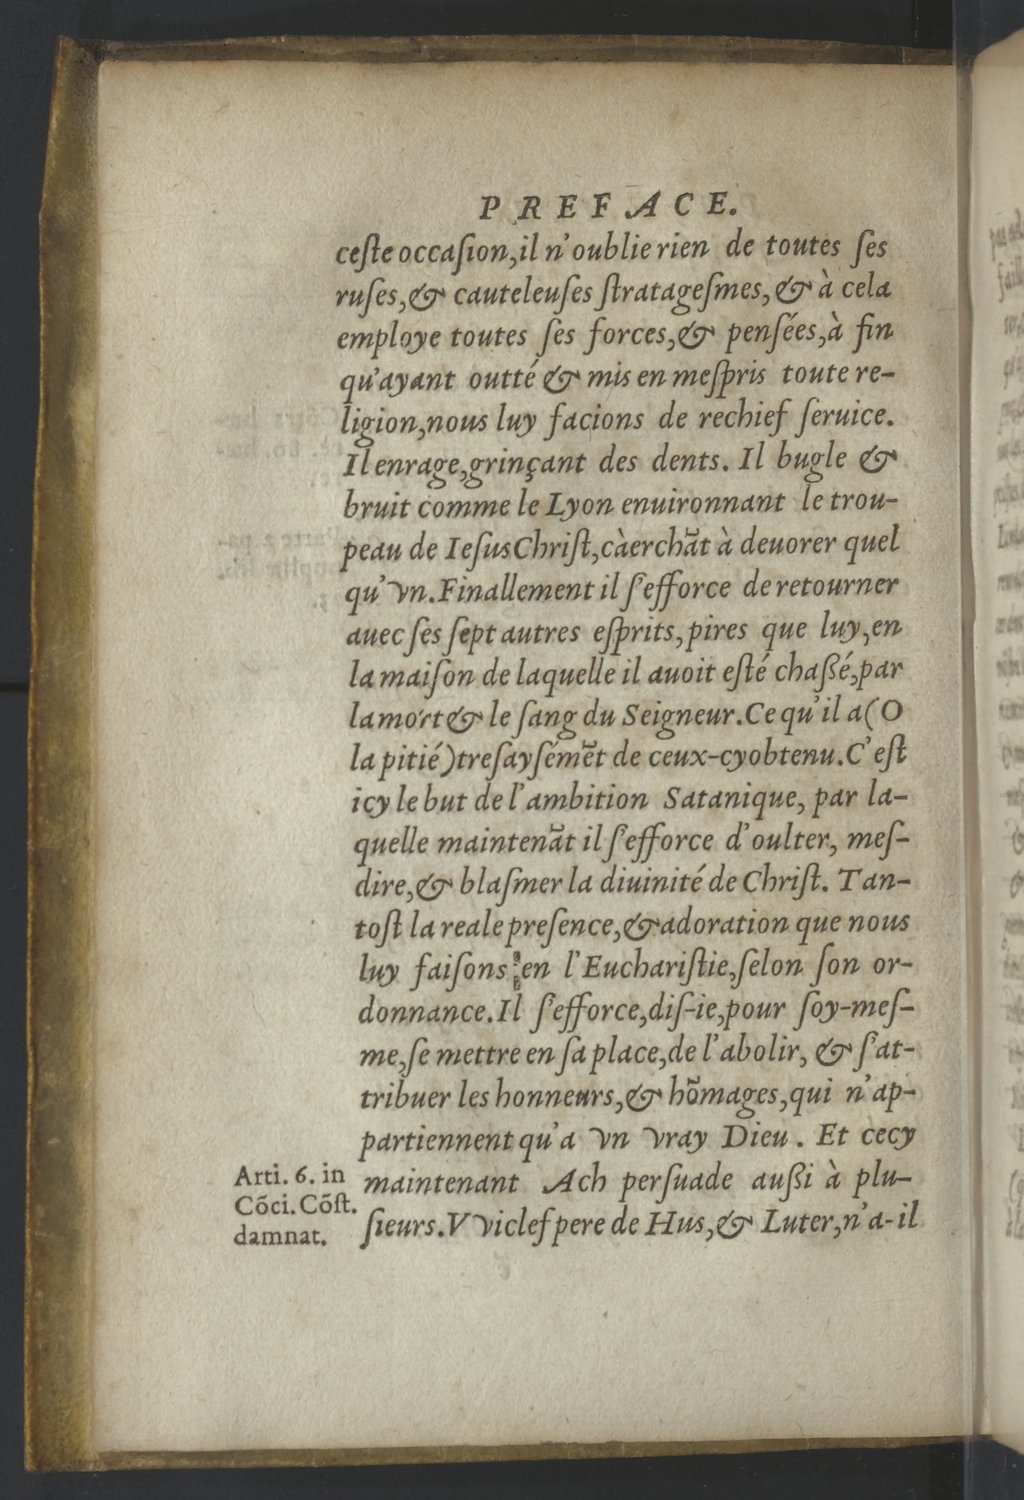 PREFACE.
ceſte occaſion,il n'oublie rien de toutes ſes
ruſes,& cauteleuſes ſtratageſmes, & à cela
employe toutes ſes forces,& penſées,à fin
qu'ayant outté & mis en meſpris toute re-
ligion,nous luy facions de rechief ſeruice.
Il enrage,grinçant des dents. Il bugle &
bruit comme le Lyon enuironnant le trou-
peau de Ieſus Chriſt,càerchãt à deuorer quel
qu'vn.Finallement il ſ'efforce de retourner
auec ſes ſept autres eſprits,pires que luy,en
la maiſon de laquelle il auoit eſté chaßé,par
la mort & le ſang du Seigneur.Ce qu'il a (O
la pitié)treſayſémẽt de ceux-cy obtenu.C'eſt
icy le but de l'ambition Satanique, par la-
quelle maintenãt il ſ'efforce d'oulter, meſ-
dire,& blaſmer la diuinité de Chriſt. Tan-
toſt la reale preſence,& adoration que nous
luy faiſons en l'Euchariſtie,ſelon ſon or-
donnance.Il ſ'efforce,diſ-ie,pour ſoy-meſ-
me,ſe mettre en ſa place,de l'abolir, & ſ'at-
tribuer les honneurs,& hõmages,qui n'ap-
partiennent qu'a vn vray Dieu. Et cecy
maintenant Ach perſuade außi à plu-
ſieurs.VViclef pere de Hus,& Luter,n'a-il
Arti. 6. in
Cõci. Cõſt.
damnat.